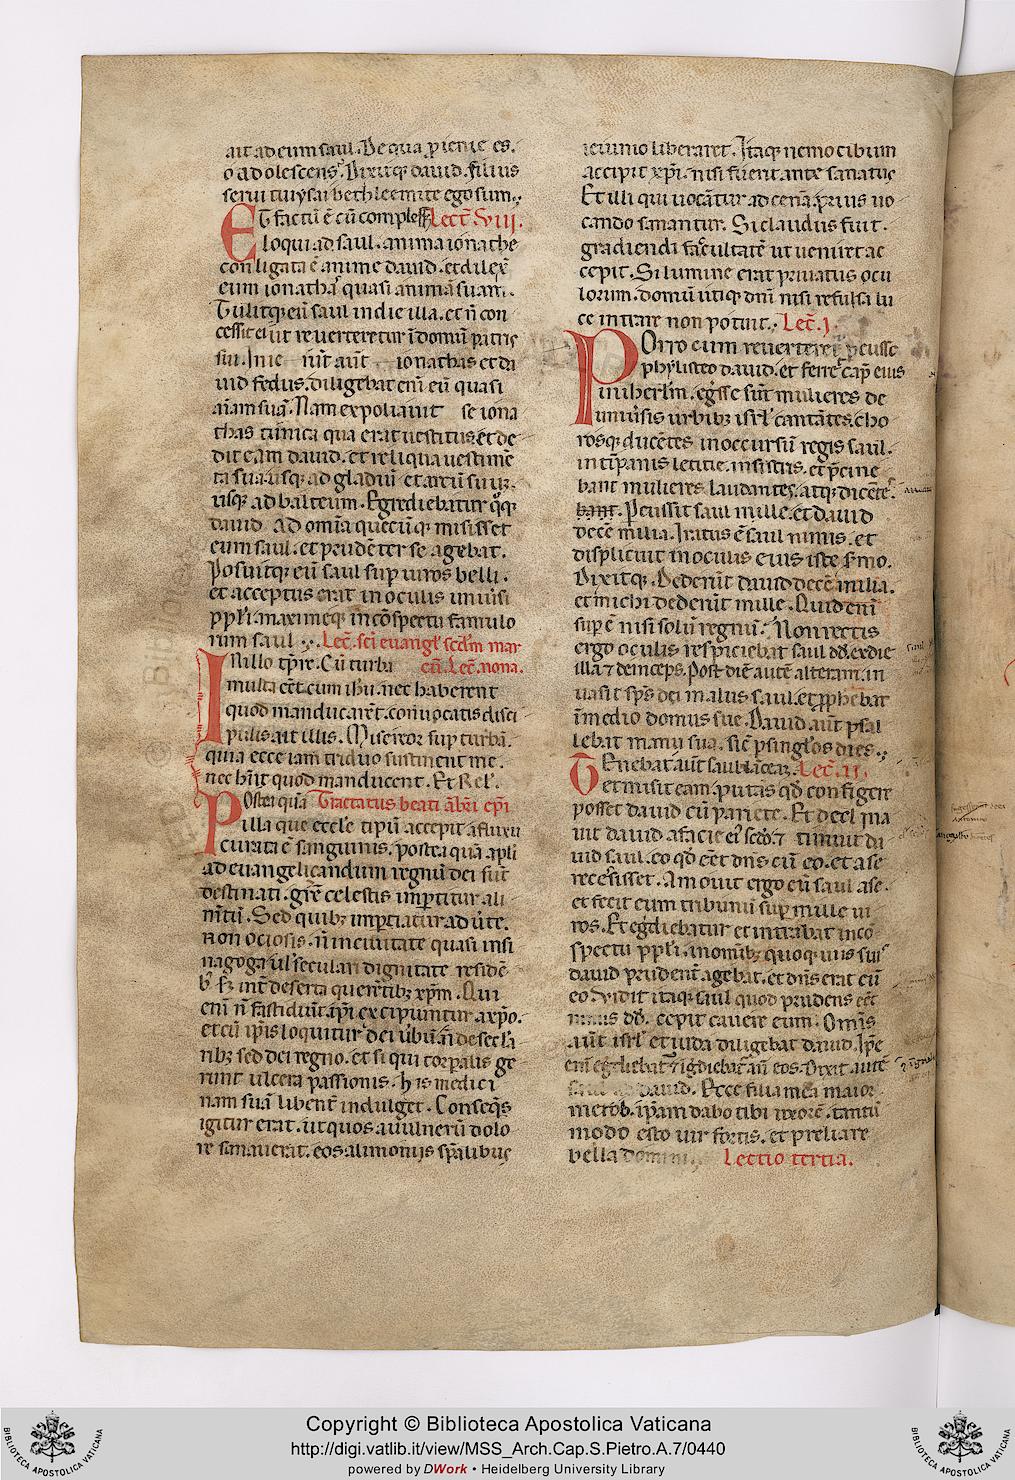 ait ad eum saul. De qua p̱ienie es.
o adolescens. Dixitq; dauid. filius
serui tui ysai bethleemite ego sum.
Et factū ē cū complesset Lect̄. Viii.
loqui ad saul. anima ionathe
conligata ē anime dauid. et dilex̄
eum ionathas quasi animā suam.
Tulitq; eū saul in die illa. et n̄ con
cessit ei ut reuerteretur ī domū patris
sui. Inie rūt aūt ionathas et da
uid fedus. diligebat eni eū quasi
aīam suā. Nam expoliauit se iona
thas tunica qua erat uestitus. et de
dit eam dauid. et reliqua uestimē
ta sua usq; ad gladiū et arcū suū.
usq; ad balteum. Egrediebatur q̊q;
dauid ad omīa quecūq; misisset
eum saul. et prudēter se agebat.
Posuitq; eū saul sup̱ uiros belli.
et acceptus erat in oculis uniūsi
pp̄li. maximeq; in cōspectu famulo
rum saul. Lec̄. sc̄i euangl̄ scd̄m mar
In illo tp̄re. Cū turba cū. Lec̄. nona.
multa eēt cum ih̄u. nec haberent
quod manducarēt. conuocatis disci
pulis. ait illis. Misereor sup̱ turbā.
quia ecce iam triduo sustinent me.
nec hn̄t quod manducent. Et Rel̄.
Postea quā Tractatus beati āb̄ei ep̄i
illa que eccl̄e tipū accepit a fluxu
curata ē sanguinis. postea quā apl̄i
ad euangelicandum regnū dei sūt
destinati. gr̄e celestis imp̱titur ali
m̄tū. Sed quib; imp̱tiatur aduīte.
Non ociosis. n̄ in ciuitate quasi insi
nagoga ul̄ seculari dignitate residē
b; S; int̄ deserta querētib; xp̄m. Qui
enī n̄ fastidiūt ip̄i excipiuntur a xp̄o.
et cū ip̄is loquitur dei ūbū. n̄ de secl̄a
rib; sed dei regno. et si qui corp̱alis ge
runt ulcera passionis. his medici
nam suā libent̄ indulget. Conseq̄s
igitur erat. ut quos a uulnerū dolo
re sanauerat. eos alimoniis sp̄alibus
ieiunio liberaret. Itaq; nemo cibum
accipit xp̄i. nisi fuerit ante sanatus
Et illi qui uocātur ad cenā. prius uo
cando sanantur. Si claudus fuit.
gradiendi facultatē ut ueniret ac
cepit. Si lumine erat priuatus ocu
lorum. domū utiq; dn̄i nisi refusa lu
ce intrare non potuit. Lec̄. i.
Porro cum reuerteret̄ p̱cusso
phylisteo dauid. et ferret cap̄ eius
in iherl̄m. egr̄sse sūt mulieres de
uniūsis urbib; isrl̄ cantātes. cho
rosq; ducētes in occursū regis saul.
in tīpanis letitie. in sistris. et p̄cine
bant mulieres laudantes. atq; dicēte.
bant. P̱cussit saul mille. et dauid
decē milia. Iratus ē saul nimis. et
displicuit in oculis eius iste s̄mo.
Dixitq; Dederūt dauid decē milia.
et michi dederūt mille. Quid enī
sup̱ē nisi solū regnū. Non rectis
ergo oculis respiciebat saul dd̄. ex die
illa & deinceps. Post diē autē alteram. in
uasit sp̄s dei malus saul. et p̱phebat
ī medio domus sue. Dauid aūt psal
lebat manu sua. sic̄ p̱ singl̄os dies.
Tenebat aūt saul lāceā. Lec̄. ii.
et misit eam. putās qd̄ configere
posset dauid cū pariete. Et decl ina
uit dauid a facie ei̓ scd̄o. & timuit da
uid saul. eo qd̄ eēt dn̄s cū eo. et a se
recessisset. Amouit ergo eū saul a se.
et fecit eum tribunū sup̱ mille ui
ros. Et egrediebatur et intrabat incō
spectu pp̄li. in omib; quoq; uiis suis
dauid prudent̄ agebat. et dn̄s erat cū
eo. Vidit itaq; saul quod prudens eēt
nimis dd̄. cepit cauere eum. Omīs
aūt isrl̄ et iuda diligebat dauid. Ip̄e
enī egrediebat̄ & ig̱diebat̄ an̄ eos. Dixit autē
saul ad dauid. Ecce filia mea maior
merob. ip̄am dabo tibi uxorē. tantū
modo esto uir fortis. et preliare
bella domini. Lectio tertia.
Copyright © Biblioteca Apostolica Vaticana
http://digi.vatlib.it/view/MSS_Arch.Cap.S.Pietro.A.7/0440
powered by DWork • Heidelberg University Library
BIBLIOTECA APOSTOLICA VATICANA
BIBLIOTECA APOSTOLICA VATICANA